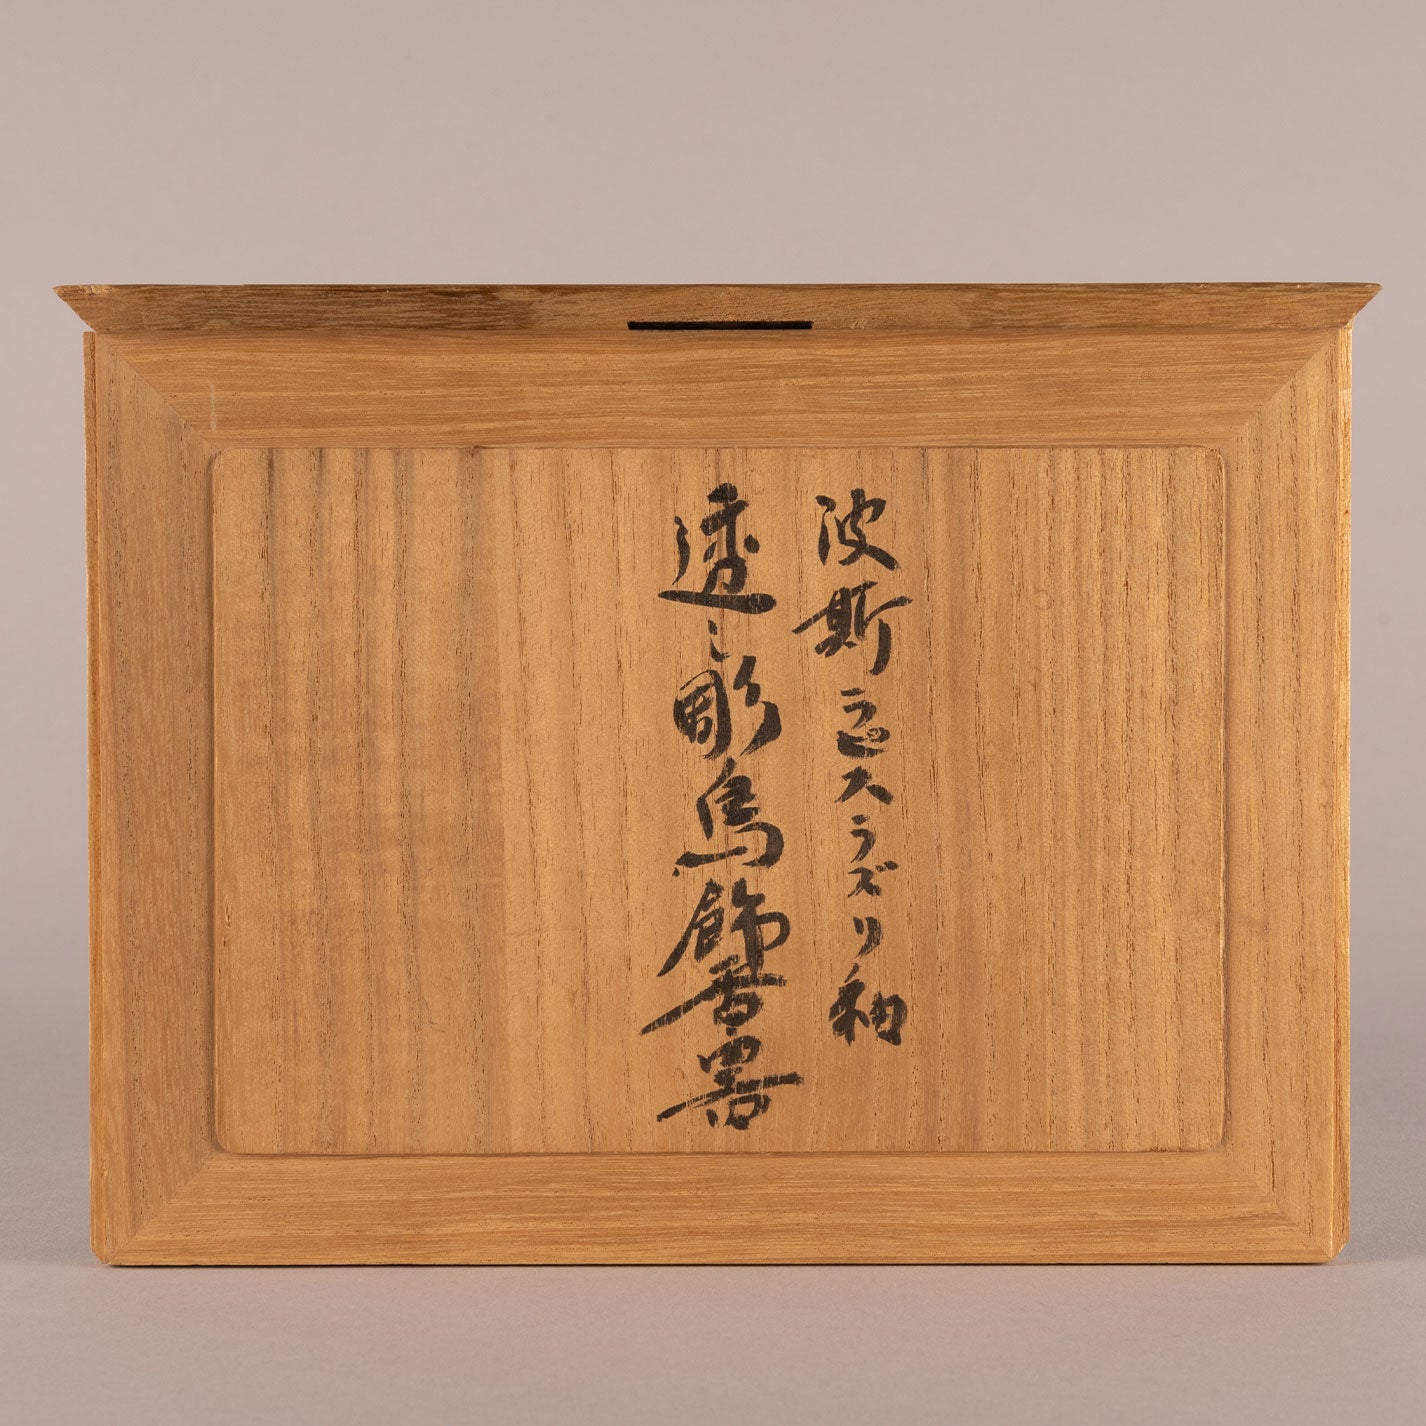 波斯ラピスラズリ釉
透し彫鳥飾香器